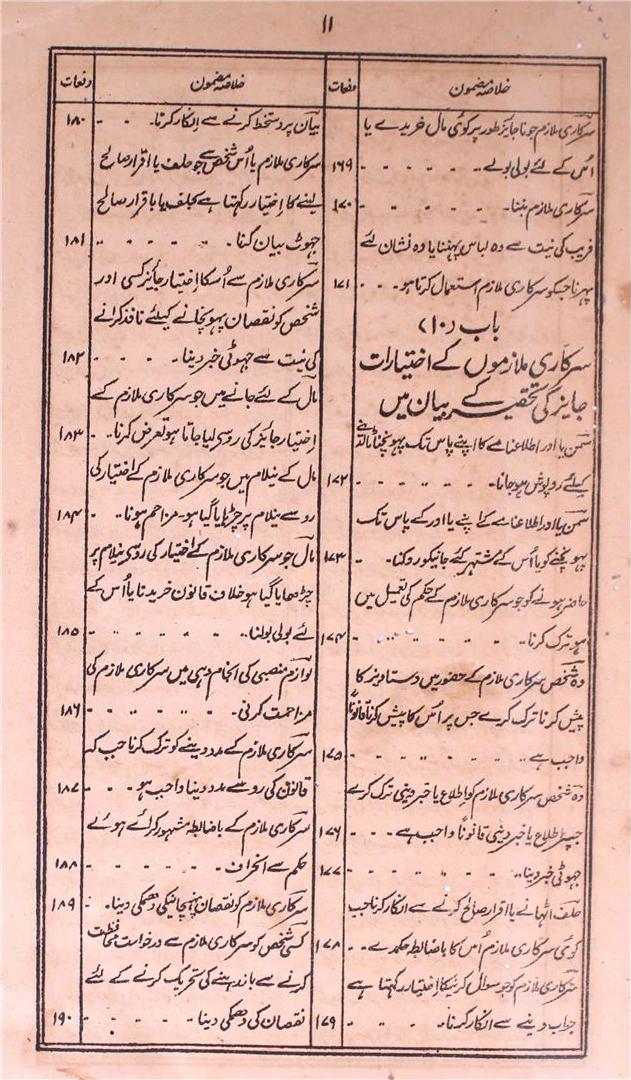 ۱۱
خلاصہ مضمون
دفعات
سرکاری ملازم جو ناجایز طور پر کوئی مال خریدے یا
اُس کے لئے بولی بولے - - - - - ۱۶۹
سرکاری ملازم بننا - - - - - ۱۷۰
فریب کی نیت سے وہ لباس پہننا یا وہ نشان لئے
پہرنا جسکو سرکاری ملازم استعمال کرتا ہو - - - ۱۷۱
باب (۱۰)
سرکاری ملازموں کے اختیارات
جایز کی تحقیر کے بیان میں
سمن یا اور اطلاعنامے کا اپنے پاس تک پہونچنا ٹالدینے
کیلئے روپوش ہوجانا - - - - - ۱۷۲
سمن یا اور اطلاعنامے کے اپنے یا اور کے پاس تک
پہونچنے کو یا اُس کے مشتہر کئے جانیکو روکنا - ۱۷۳
حاضر ہونے کو جو سرکاری ملازم کے حکم کی تعمیل میں
ہو ترک کرنا - - - - - ۱۷۴
وہ شخص سرکاری ملازم کے حضور میں دستاویز کا
پیش کرنا ترک کرے جس پر اُس کا پیش کرنا قانوناً
واجب ہے - - - - - ۱۷۵
وہ شخص سرکاری ملازم کو اطلاع یا خبر دینی ترک کرے
جسپر اطلاع یا خبر دینی قانوناً واجب ہے - - - ۱۷۶
جہوٹی خبر دینا - - - - - ۱۷۷
حلف اٹہانے یا اقرار صالح کرنے سے انکار کرنا جب
کوئی سرکاری ملازم اُس کا باضابطہ حکم دے - - ۱۷۸
سرکاری ملازم کو جو سوال کرنیکا اِختیار رکہتا ہے
جواب دینے سے انکار کرنا - - - - ۱۷۹
خلاصہ مضمون
دفعات
بیان پر دستخط کرنے سے اِنکار کرنا - - - ۱۸۰
سرکاری ملازم یا اُس شخص سے جو حلف یا اقرار صالح
لینے کا اِختیار رکہتا ہے بحلف یا باقرار صالح
جہوٹ بیان کرنا - - - - - ۱۸۱
سرکاری ملازم سے اُسکا اختیار جائز کسی اور
شخص کو نقصان پہونچانے کیلئے نافذ کرانے
کی نیت سے جہوٹی خبر دینا - - - - ۱۸۲
مال کے لئے جانے میں جو سرکاری ملازم کے
اِختیار جائز کی روسی لیا جاتا ہو تعرض کرنا - - ۱۸۳
مال کے نیلام میں جو سرکاری ملازم کے اختیار کی
رو سے نیلام پر چڑہایا گیا ہو - مزاحم ہونا - - ۱۸۴
مال جو سرکاری ملازم کے اختیار کی روسی نیلام پر
چڑھایا گیا ہو خلاف قانون خریدنا یا اُس کے
لئے بولی بولنا - - - - - ۱۸۵
لوازم منصبی کی انجام دہی میں سرکاری ملازم کی
مزاحمت کرنی - - - - - ۱۸۶
سرکاری ملازم کے مدد دینے کو ترک کرنا جب کہ
قانون کی رو سے مدد دینا واجب ہو - - - ۱۸۷
سرکاری ملازم کے باضابطہ مشہور کرائے ہوئے
حکم سے انحراف - - - - - ۱۸۸
سرکاری ملازم کو نقصان پہنچانیکی دہمکی دینا - - ۱۸۹
کسی شخص کو سرکاری ملازم سے درخواست حفاظت
کرنے سے باز رہنے کی تحریک کرنے کے لئے
نقصان کی دھمکی دینا - - - - ۱۹۰